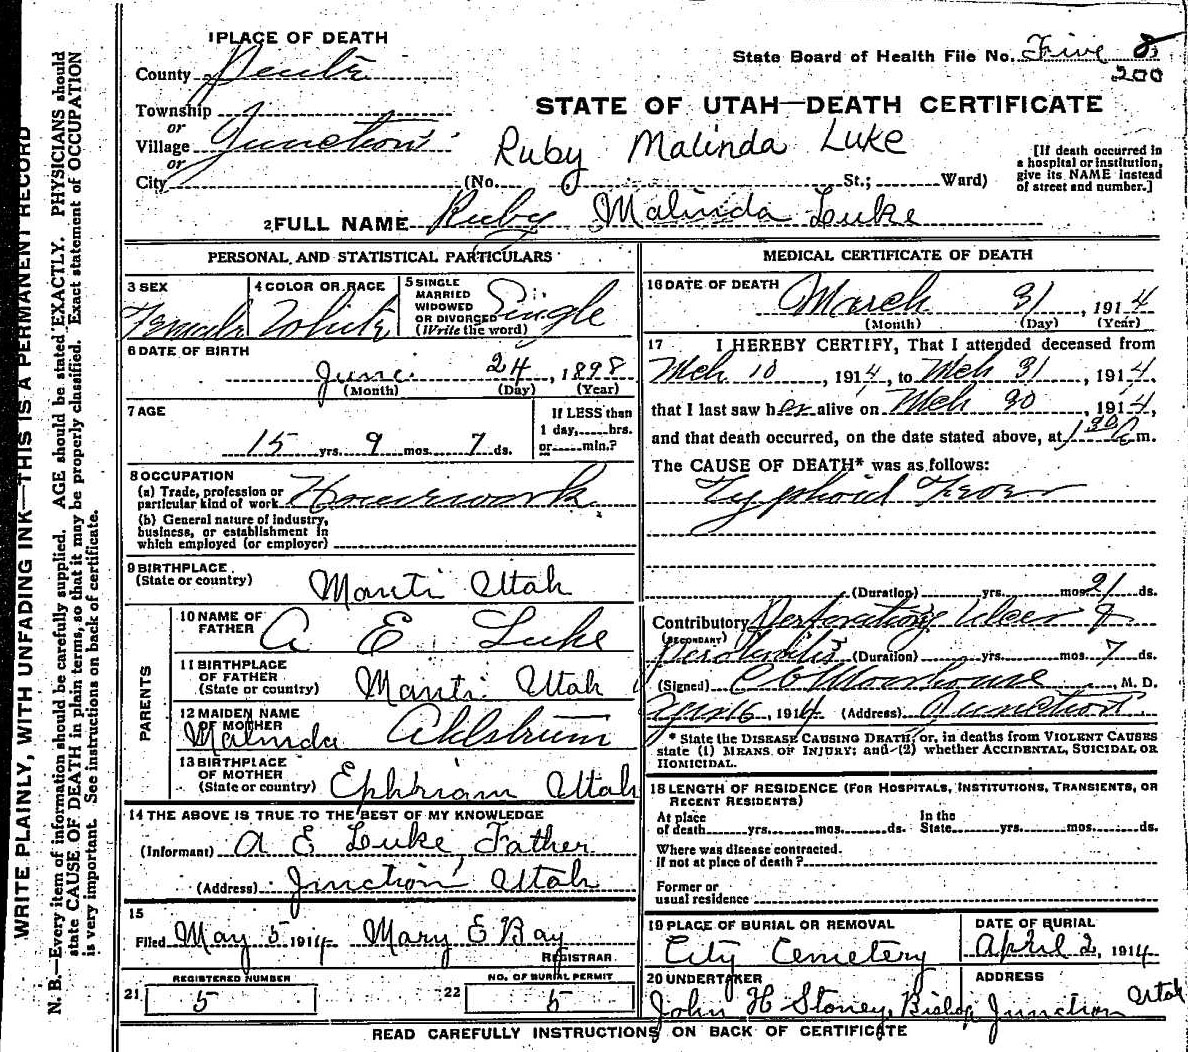 WRITE PLAINLY, WITH UNFADING INK—THIS IS A PERMANENT RECORD
N. B.—Every item of information should be carefully supplied. AGE should be stated EXACTLY. PHYSICIANS should
state CAUSE OF DEATH in plain terms, so that it may be properly classified. Exact statement of OCCUPATION
is very important. See instructions on back of certificate.
1 PLACE OF DEATH
State Board of Health File No. Five 8
200
County
STATE OF UTAH—DEATH CERTIFICATE
Township
or
Village Junction
or
Ruby Malinda Luke
City (No. St.; Ward)
[If death occurred in
a hospital or institution,
give its NAME instead
of street and number.]
2 FULL NAME Ruby Malinda Luke
PERSONAL AND STATISTICAL PARTICULARS
3 SEX Female
4 COLOR OR RACE White
5 SINGLE
MARRIED
WIDOWED
OR DIVORCED
(Write the word) Single
6 DATE OF BIRTH
June 24, 1898
(Month) (Day) (Year)
7 AGE
15 yrs. 9 mos. 7 ds.
If LESS than
1 day, hrs.
or min.?
8 OCCUPATION
(a) Trade, profession or
particular kind of work Housework
(b) General nature of industry,
business, or establishment in
which employed (or employer)
9 BIRTHPLACE
(State or country) Manti Utah
PARENTS
10 NAME OF
FATHER A E. Luke
11 BIRTHPLACE
OF FATHER
(State or country) Manti Utah
12 MAIDEN NAME
OF MOTHER
Malinda Ahlstrum
13 BIRTHPLACE
OF MOTHER
(State or country) Ephriam Utah
14 THE ABOVE IS TRUE TO THE BEST OF MY KNOWLEDGE
(Informant) A E Luke, Father
(Address) Junction Utah
15
Filed May 5 1914 Mary E Bay
REGISTRAR.
REGISTERED NUMBER
21 5
NO. OF BURIAL PERMIT
22 5
MEDICAL CERTIFICATE OF DEATH
16 DATE OF DEATH March 31, 1914
(Month) (Day) (Year)
17 I HEREBY CERTIFY, That I attended deceased from
Mch 10, 1914, to Mch 31, 1914,
that I last saw her alive on Mch 30, 1914,
and that death occurred, on the date stated above, at 1 30 m.
The CAUSE OF DEATH* was as follows:
Typhoid Fever
(Duration) yrs. mos. 21 ds.
Contributory Perforating Ulcer &
(SECONDARY)
Peritonitis (Duration) yrs. mos. 7 ds.
(Signed) M. D.
16, 1914 (Address) Junction
* State the DISEASE CAUSING DEATH, or, in deaths from VIOLENT CAUSES
state (1) MEANS OF INJURY; and (2) whether ACCIDENTAL, SUICIDAL OR
HOMICIDAL.
18 LENGTH OF RESIDENCE (FOR HOSPITALS, INSTITUTIONS, TRANSIENTS, OR
RECENT RESIDENTS)
At place
of death yrs. mos. ds.
In the
State yrs. mos. ds.
Where was disease contracted.
if not at place of death?
Former or
usual residence
19 PLACE OF BURIAL OR REMOVAL
City Cemetery
DATE OF BURIAL
April 2, 1914
20 UNDERTAKER
John H Stoney, Bishop
ADDRESS
Junction Utah
READ CAREFULLY INSTRUCTIONS ON BACK OF CERTIFICATE